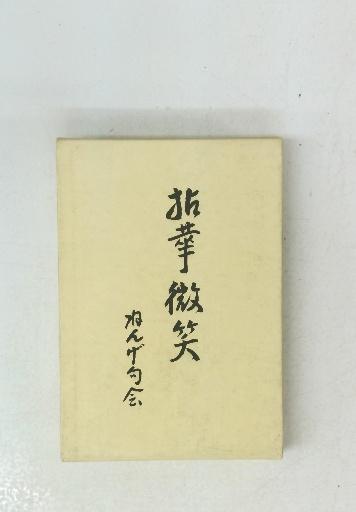 拈華微笑
ねんげ句会